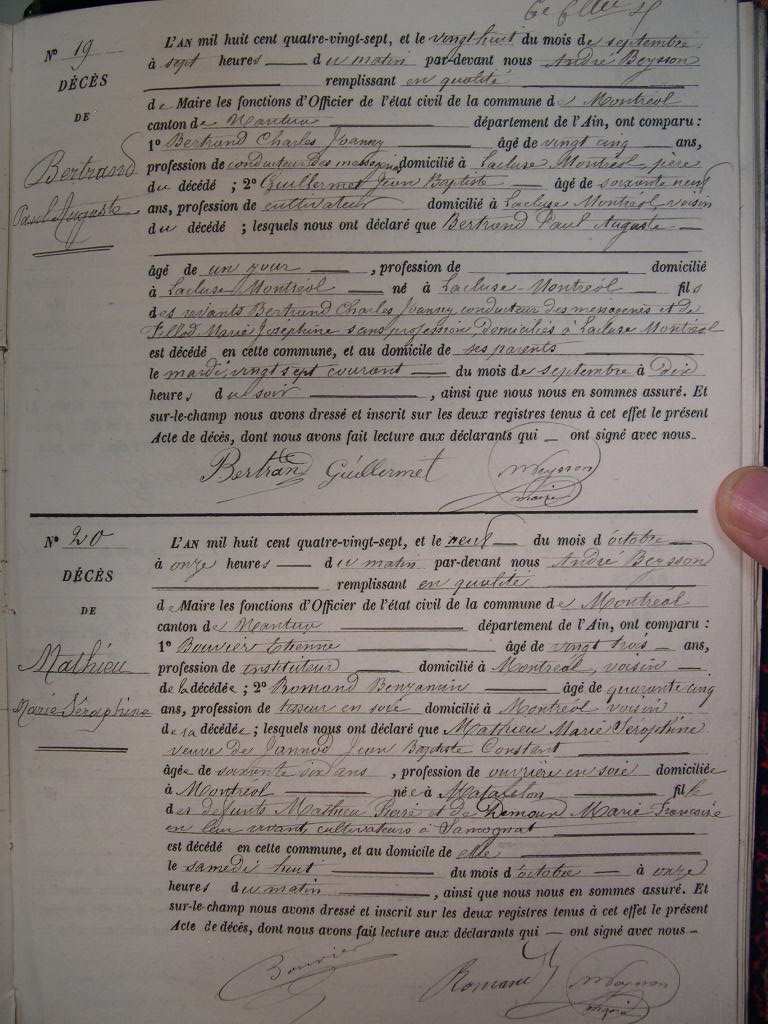 N° 19
DÉCÈS
DE
Bertrand
Paul Auguste
L'AN mil huit cent quatre-vingt-sept, et le vingt huit du mois de septembre
à sept heures du matin par-devant nous André Beysson
remplissant en qualité
de Maire les fonctions d'Officier de l'état civil de la commune de Montréal
canton de Nantua département de l'Ain, ont comparu :
1° Bertrand Charles Joanny âgé de vingt cinq ans,
profession de conducteur des messageries domicilié à Lacluse Montréal, père
du décédé ; 2° Guillermet Jean Baptiste âgé de soixante neuf
ans, profession de cultivateur domicilié à Lacluse Montréal voisin
du décédé ; lesquels nous ont déclaré que Bertrand Paul Auguste
âgé de un jour , profession de domicilié
à Lacluse Montréal né à Lacluse-Montréal fils
des vivants Bertrand Charles Joanny conducteur des messageries et de
Marie Joséphine sans profession domiciliés à Lacluse Montréal
est décédé en cette commune, et au domicile de ses parents
le mardi, vingt sept courant du mois de septembre à dix
heures du soir , ainsi que nous nous en sommes assuré. Et
sur-le-champ nous avons dressé et inscrit sur les deux registres tenus à cet effet le présent
Acte de décès, dont nous avons fait lecture aux déclarants qui ont signé avec nous.
Bertrand Guillermet Beysson
maire
N° 20
DÉCÈS
DE
Mathieu
Marie Séraphine
L'AN mil huit cent quatre-vingt-sept, et le neuf du mois d'octobre
à onze heures du matin par-devant nous André Beysson
remplissant en qualité
de Maire les fonctions d'Officier de l'état civil de la commune de Montréal
canton de Nantua département de l'Ain, ont comparu :
1° Bouvier Etienne âgé de vingt trois ans,
profession de instituteur domicilié à Montréal, voisin
de la décédée ; 2° Romand Benjamin âgé de quarante cinq
ans, profession de tisseur en soie domicilié à Montréal voisin
de la décédée ; lesquels nous ont déclaré que Mathieu Marie Séraphine
veuve de Jannod Jean Baptiste Constant
âgée de soixante dix ans , profession de ouvrière en soie domiciliée
à Montréal née à Matafelon fille
des defunts Mathieu Pierre et de Demour Marie Françoise
en leur vivant cultivateurs à Samognat
est décédé en cette commune, et au domicile de elle
le samedi huit du mois d'octobre à onze
heures du matin , ainsi que nous nous en sommes assuré. Et
sur-le-champ nous avons dressé et inscrit sur les deux registres tenus à cet effet le présent
Acte de décès, dont nous avons fait lecture aux déclarants qui ont signé avec nous
Bouvier Romand Beysson
maire